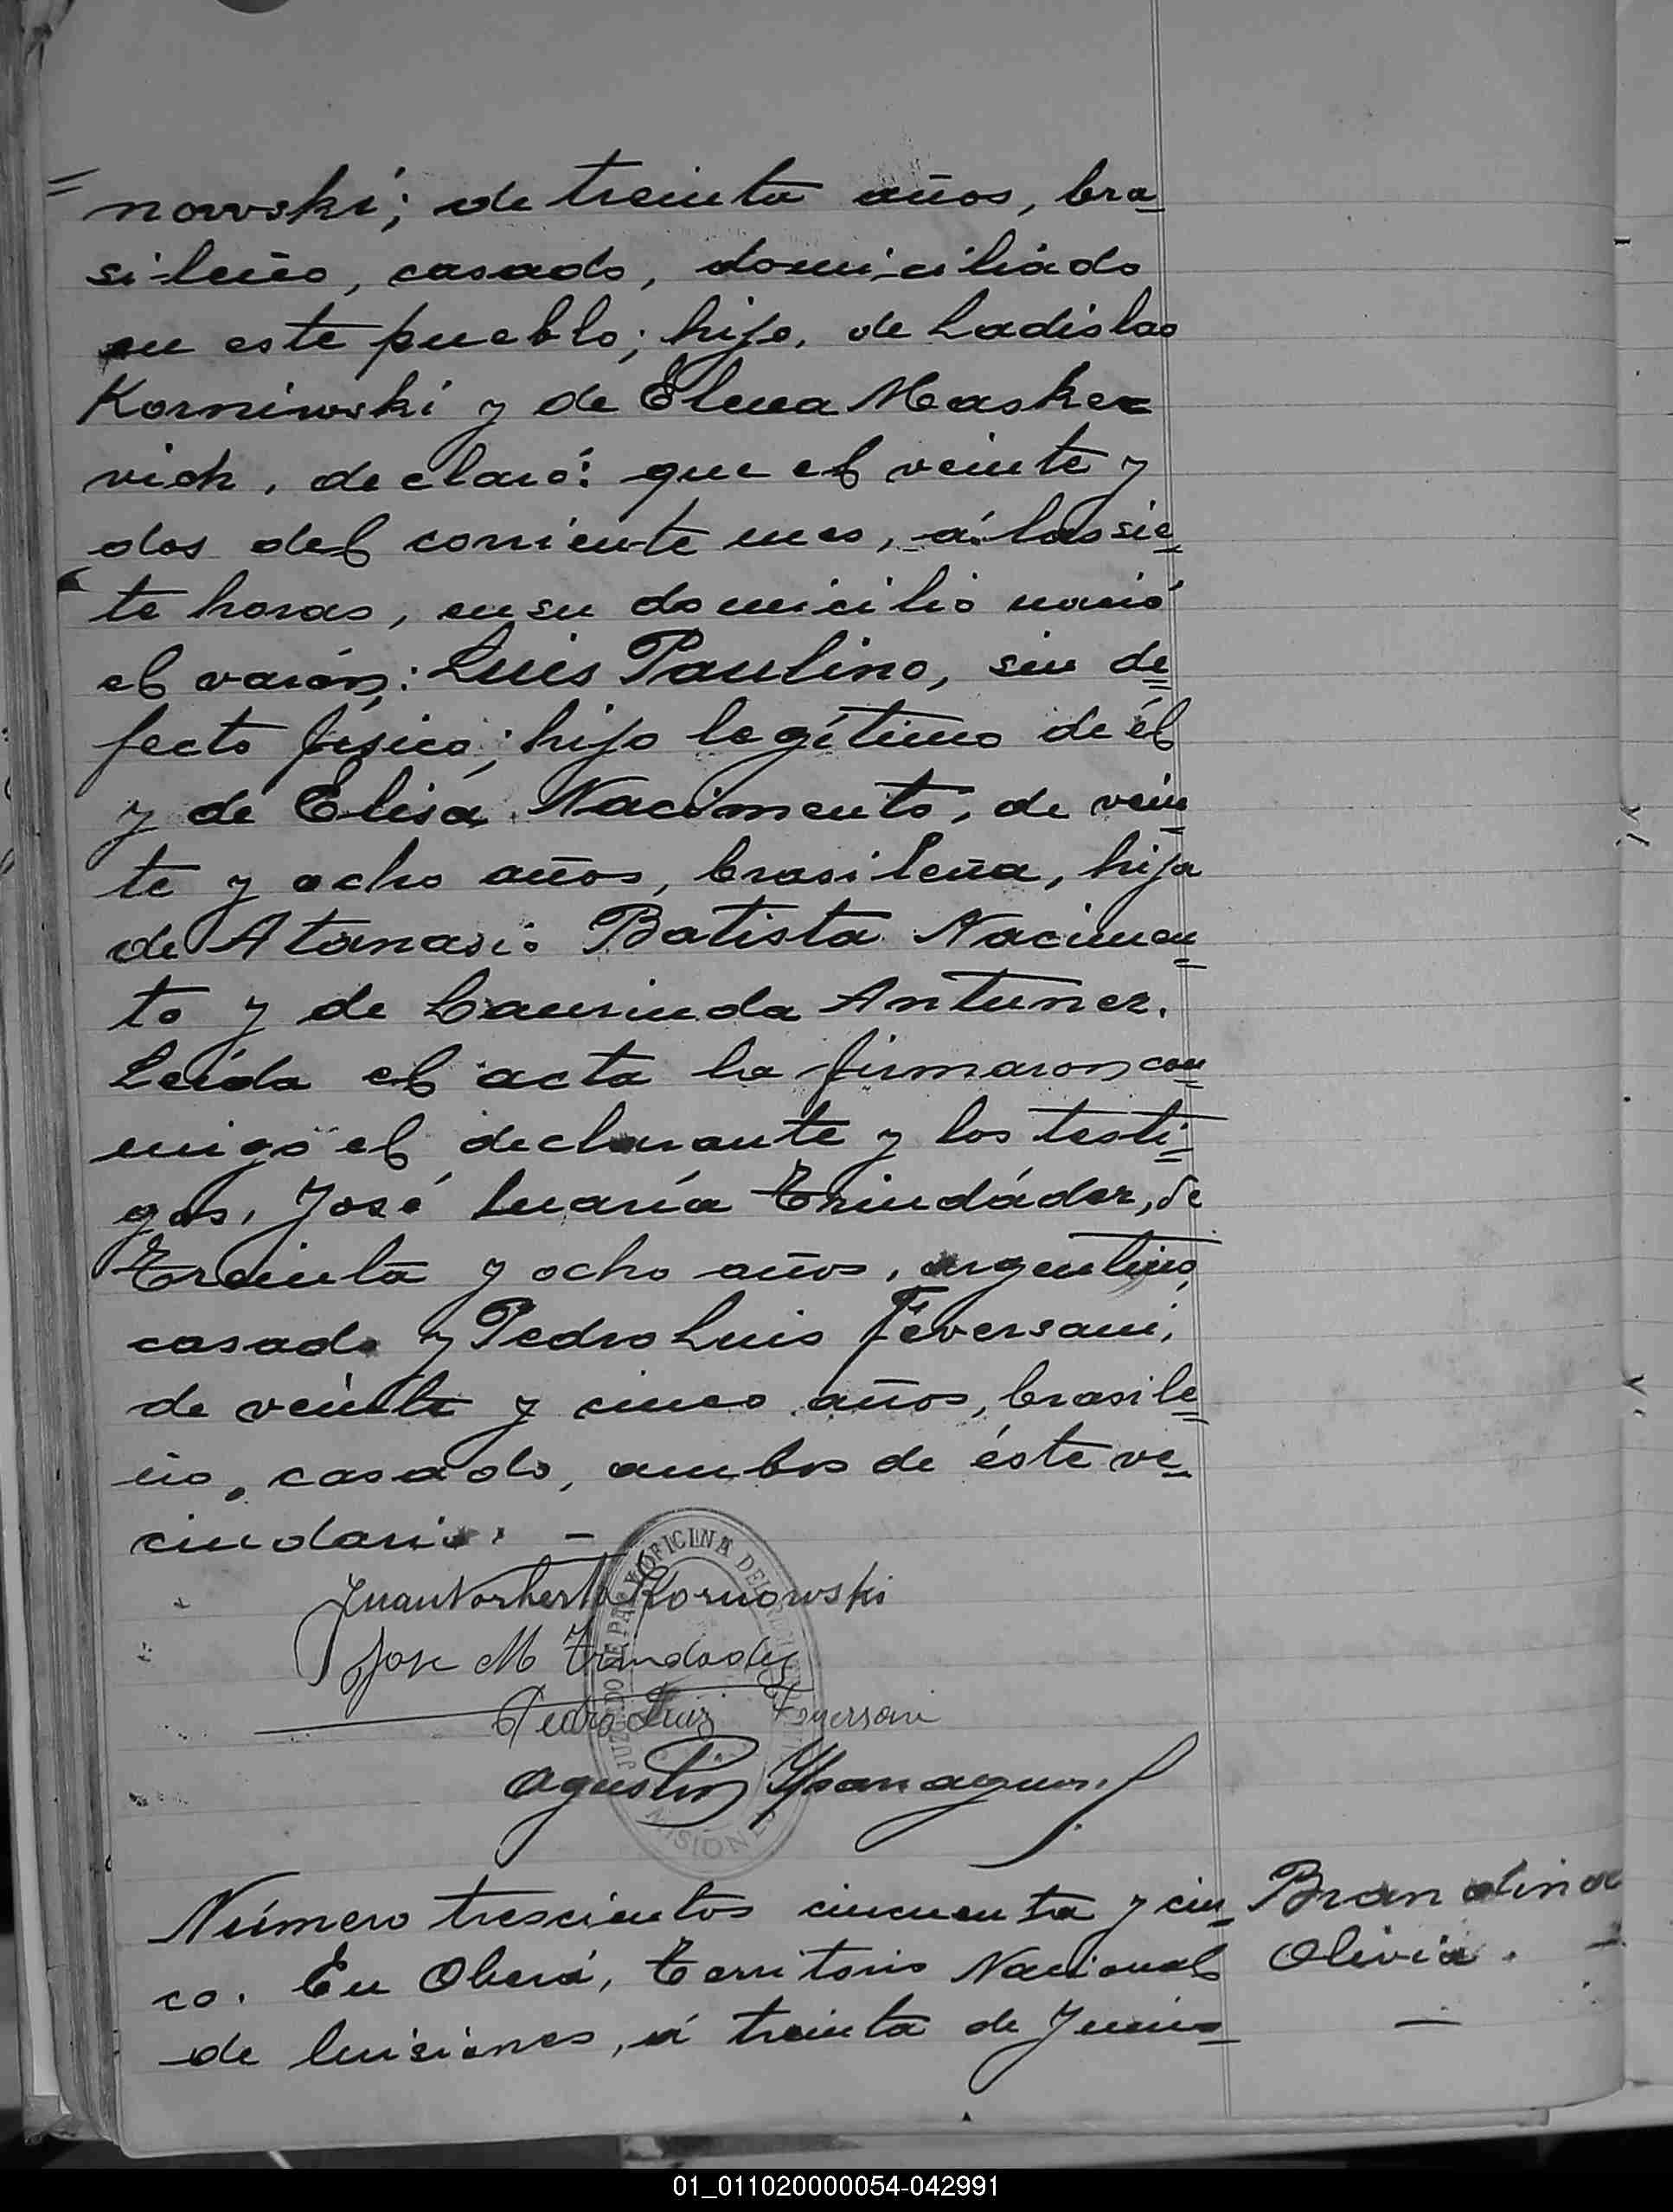 = nowski; de treinta años, bra_
sileño, casado, domiciliado
en este pueblo; hijo, de Ladislao
Korniwski y de Elena Maske=
vich, declaró: que el veinte y
dos del corriente mes, á las sie=
te horas, en su domicilio nació
el varón: Luis Paulino, sin de=
fecto físico; hijo legítimo de él
y de Elisa Nacimento, de vein=
te y ocho años, brasileña, hija
de Atanasio Batista Nacimen=
to y de Laurinda Antunez.
Leída el acta la firmaron con=
migo el declarante y los testi=
gos, José María Trindádez, de
treinta y ocho años, argentino,
casado y Pedro Luis Feversani,
de veinte y cinco años, brasile=
ño, casado, ambos de éste ve=
cindario. —
Juan Norberto Kornowski
Jose M Trindadez
Pedro Luiz Feversani
Agustin
JUZGADO DE PAZ Y OFICINA DEL REGISTRO CIVIL
MISIONES
Número trescientos cincuenta y cin=
co. En Oberá, Territorio Nacional
de Misiones, á treinta de Junio
Brandina
Olivia. —
—
01_011020000054-042991